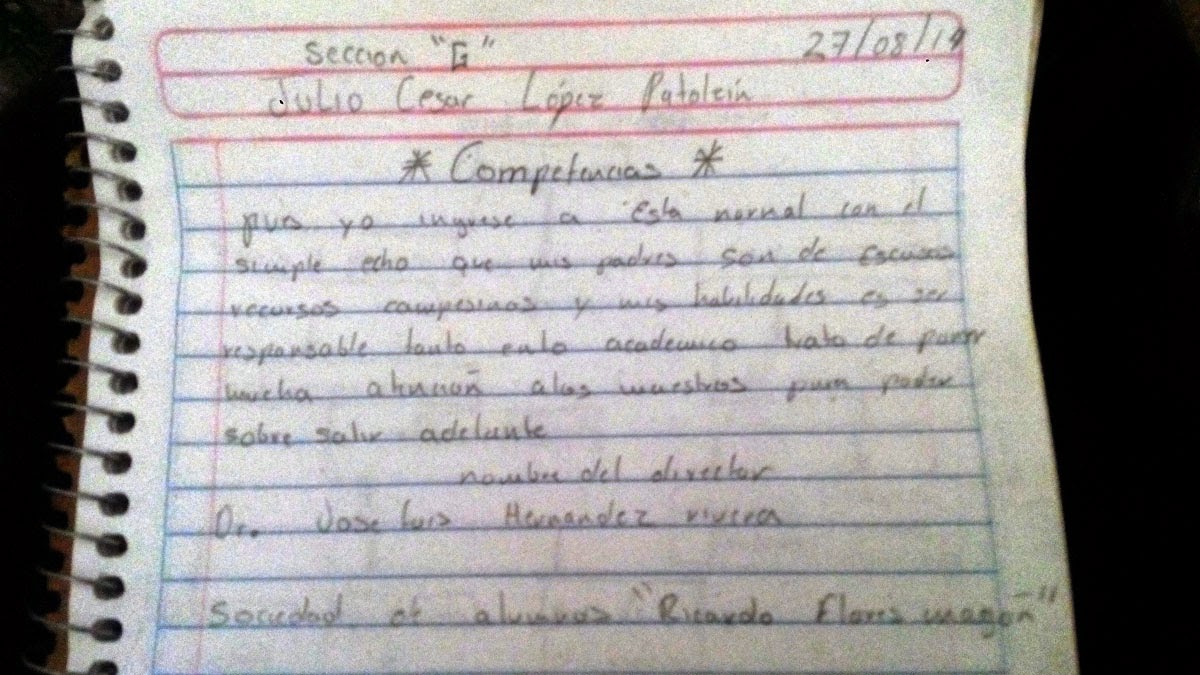 Seccion "G"
27/08/14
Julio Cesar López Patolzin
* Competencias *
pues yo ingrese a esta normal con el
simple echo que mis padres son de escusos
recursos campesinos y mis habilidades es ser
responsable tanto enlo academico trato de poner
mucha atencioñ alos maestros para poder
sobre salir adelante
nombre del director
Dr. Jose luis Hernandez rivera
Sociedad de alumnos "Ricardo Flores magoñ"